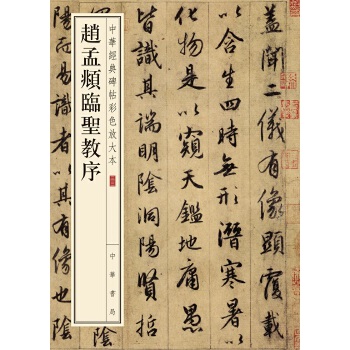 蓋聞二儀有像顯覆載
以含生四時無形潛寒暑以
化物是以窺天鑑地庸愚
皆識其端明陰洞陽賢哲
中華經典碑帖彩色放大本
趙孟頫臨聖教序
中華書局
陽而易識者以其有像也陰